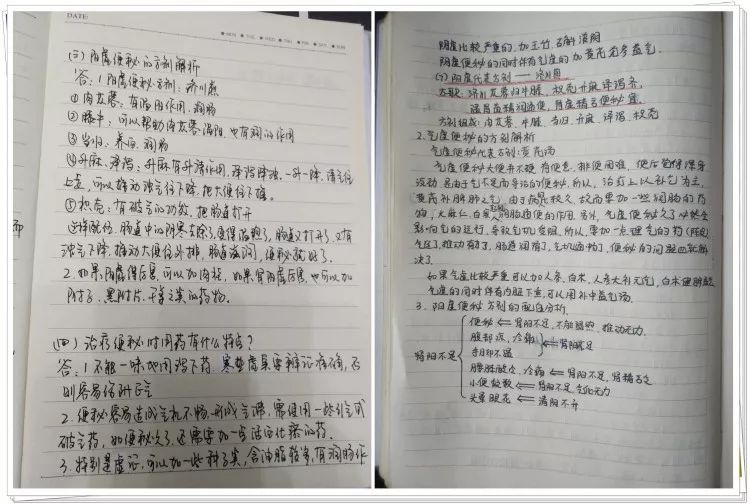 DATE:
MON TUE WED THU FRI SAT SUN
(三)阳虚便秘的方剂解析
答:1.阳虚便秘方剂:济川煎
①肉苁蓉:有温阳作用,润肠
②膝牛:可以帮助肉苁蓉温阳,也有润的作用
③当归:养血、润肠
④升麻、泽泻:升麻有升清作用,泽泻降浊,一升一降,清气往
上走,可以推动浊气往下降,把大便往下推。
⑤枳壳:有破气的功效,把肠道打开
肠道中的阴寒去除了,变得温煦了,肠道又打开了,又有
浊气下降,推动大便往外排,肠道滋润,便秘就好了。
2.如果阳虚得厉害,可以加肉桂,如果肾阳虚厉害,也可以加
附子、黑附片、干姜之类的药物。
(四)治疗便秘时用药有什么特点?
答:1.不能一味地用泻下药,寒热虚实要辨证准确,否
则容易伤耗正气
2.便秘容易造成气机不畅,形成气滞,需使用一些引气或
破气药,如便秘久了,还需要加一些活血化瘀的药。
3.特别是虚证,可以加一些种子类,含油脂较多,有润肠作
阴虚比较严重的,加玉竹、石斛滋阴
阴虚便秘的同时伴有气虚的加黄芪党参益气。
(7)阳虚代表方剂——济川煎
方歌:济川苁蓉归牛膝,枳壳升麻泽泻齐,
温肾益精润通便,肾虚精亏便秘宜。
方剂组成:肉苁蓉、牛膝、当归、升麻、泽泻、枳壳
2.气虚便秘的方剂解析
气虚便秘代表方剂:黄芪汤
气虚便秘大便并不硬,有便意,排便困难,便后觉得浑身
没劲,是由于气不足而导致的便秘,所以,治疗上以补气为主,
黄芪补脾肺之气,由于病程较久,故而要加一些润肠的药
物,火麻仁、白蜜起到润肠通便的作用。另外,气虚便秘久了必然会
影响气的运行,导致气机受阻,所以,要加一点理气的药(陈皮)
气足了,推动有力了,肠道润滑了,气机通畅了,便秘的问题也就解
决了。
如果气虚比较严重可以加人参、白术,人参大补元气,白术健脾益
气虚的同时伴有内脏下垂,可以用补中益气汤。
3.阳虚便秘方剂的配伍分析。
肾阳不足
便秘⇐肾阳不足,不能温煦,推动无力.
腹部凉、冷痛
手脚不温
⇐肾阳不足
腰膝酸软、冷痛⇐肾阳不足,肾精亏乏
小便频数⇐肾阳不足,气化无力
头晕眼花⇐清阳不升